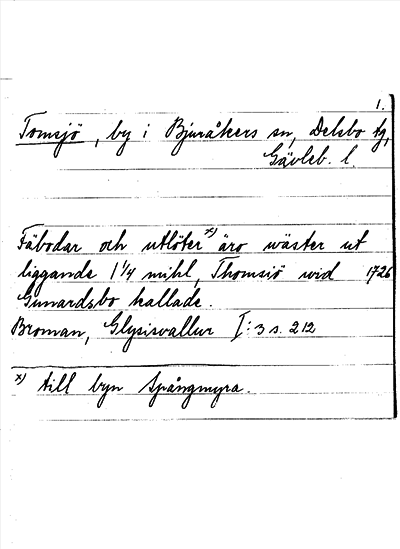 1.
Tomsjö, by i Bjuråkers sn, Delsbo tg,
Gävleb. l.
Fäbodar och utlöter x) äro wäster ut
liggande 1 1/4 mihl, Thomsiö wid 1726
Gunnardsbo kallade.
Broman, Glysisvallur I:3 s. 212
x) till byn Spångmyra.